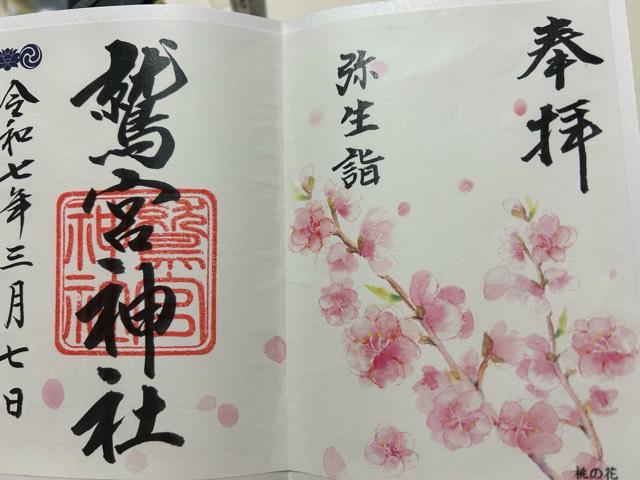 奉拝
弥生詣
桃の花
鷲宮神社
鷲宮
神社
令和七年三月七日